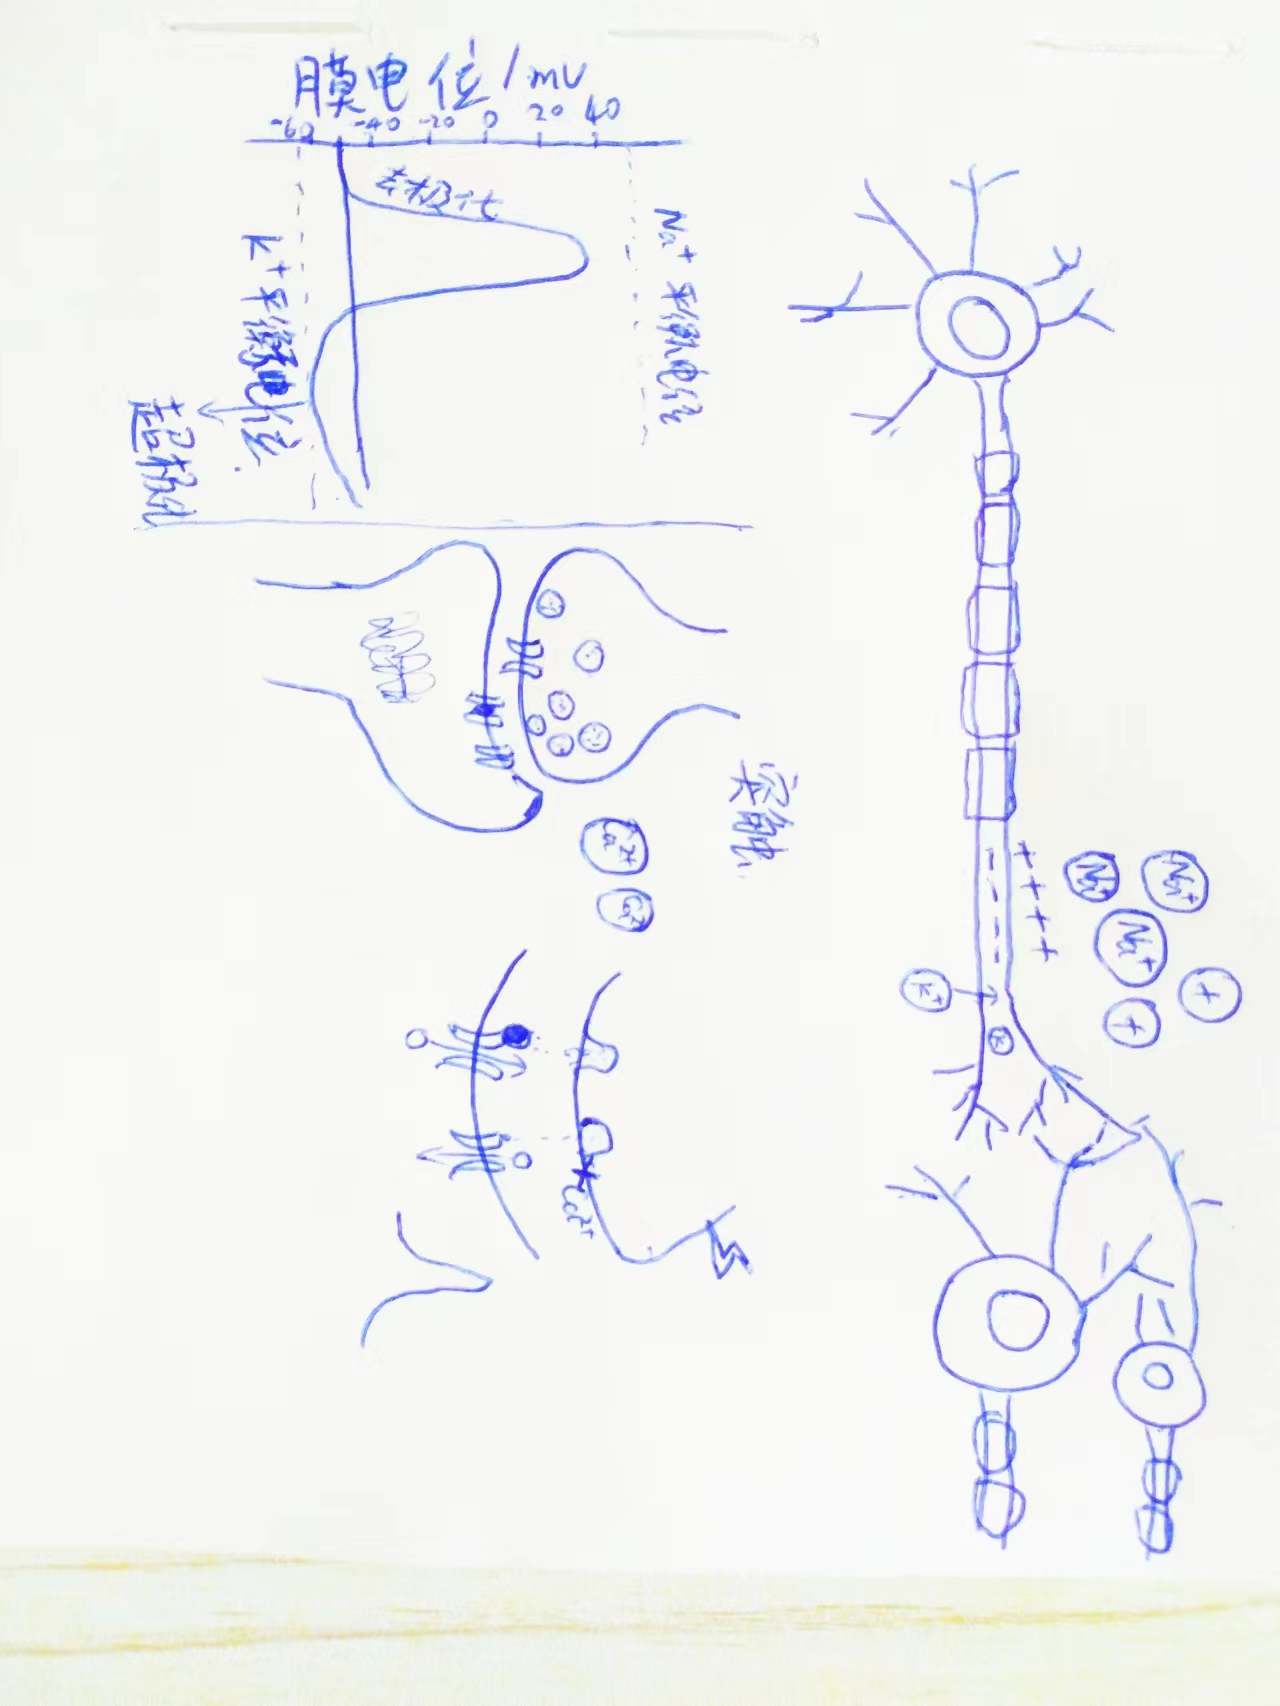 膜电位/mV
-60 -40 -20 0 20 40
去极化
Na⁺平衡电位
K⁺平衡电位
超极化
突触
Ca²⁺
Ca²⁺
Ca²⁺
- - - -
+ + + +
Na⁺
Na⁺
Na⁺
+
+
K⁺
K